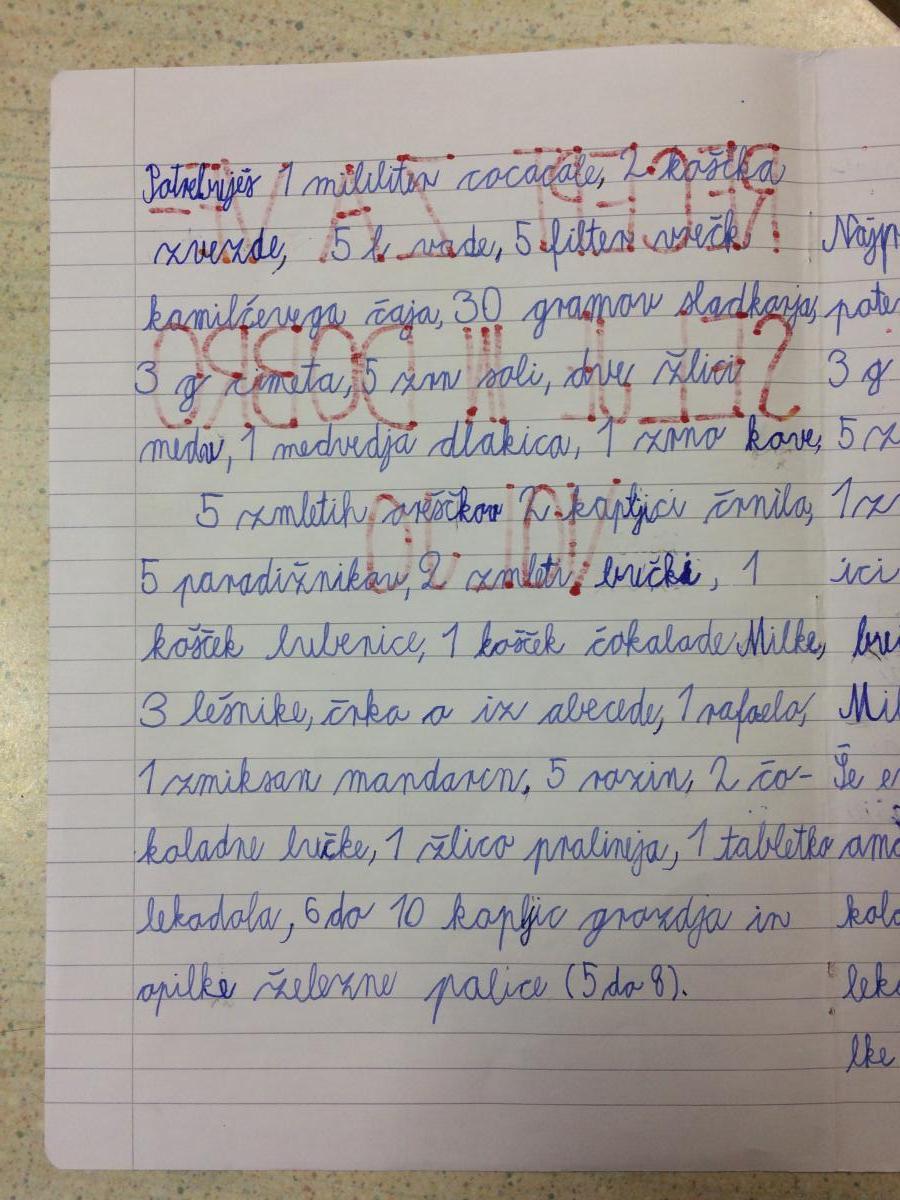 Potrebuješ 1 mililiter cocacole, 2 koščka
zvezde, 5 l vode, 5 filter vrečk
kamilčevega čaja, 30 gramov sladkorja,
3 g cimeta, 5 zrn soli, dve žlici
medu, 1 medvedja dlakica, 1 zrno kave,
5 zmletih oreščkov 2 kapljici črnila,
5 paradižnikov, 2 zmleti bučki, 1
košček lubenice, 1 košček čokolade Milke,
3 lešnike, črka a iz abecede, 1 rafaelo,
1 zmiksan mandarin, 5 rozin, 2 čo-
koladne lučke, 1 žlico pralineja, 1 tabletko
lekadola, 6 do 10 kapljic grozdja in
opilke železne palice (5 do 8).
RECEPT ZA VE-
SELJE IN DOBRO
VOLJO
Najp
pote
3 g
5 z
1 z
ici
Mil
Še e
kolo
leka
lke